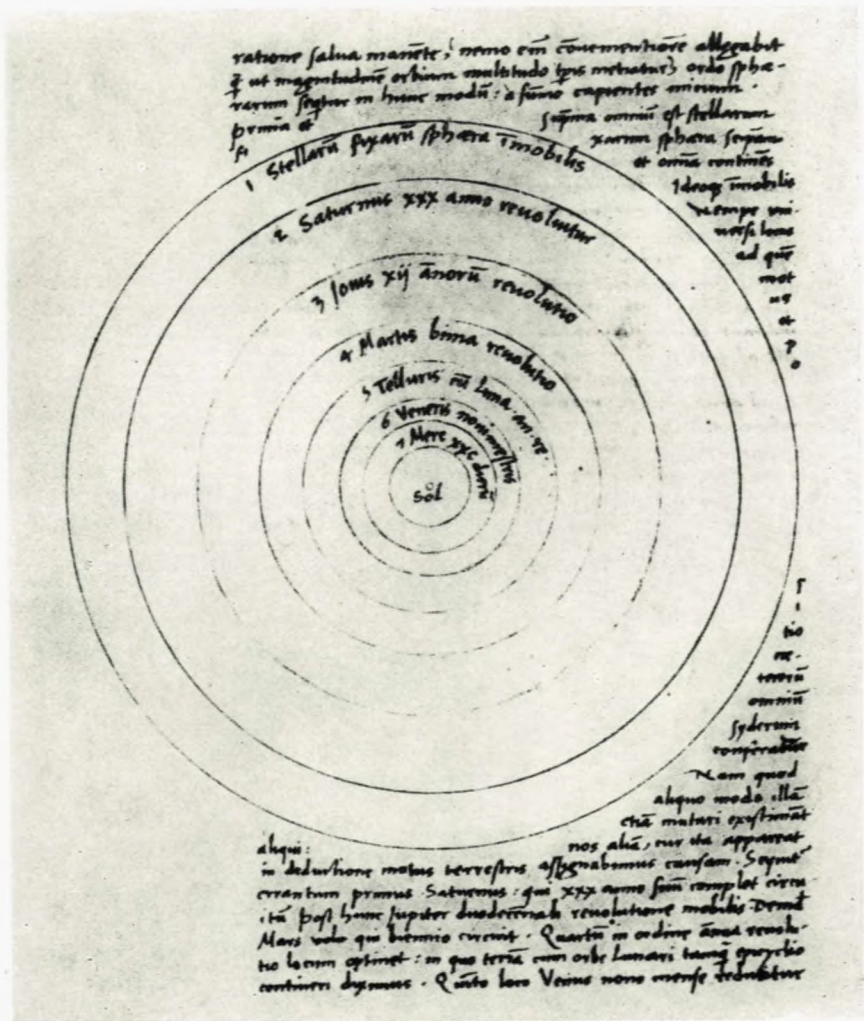 ratione salua manēte, nemo em̄ cōuenientiorē allegabit
q̄ ut magnitudinē orbium multitudo tp̄is metiatur, ordo sphæ-
rarum seq̄tur in hunc modū: a sūmo capientes initium.
prima et suprema omniū est stellarum
fi xarum sphæra seipsam
et omīa continēs
Ideoq3 īmobilis
nempe uni-
uersi locus
ad quē
mot
us
et
p
o
1 Stellarū fixarū sphæra īmobilis
2 Saturnus xxx anno reuoluitur
3 Iouis xij ānorū reuolutio
4 Martis bima reuolutio
5 Telluris cū Luna an. re.
6 Veneris nonimestris
7 Merc xxc dierū
Sol
s
i
tio
ce-
terorū
omniū
syderum
conferatur
Nam quod
aliquo modo illā
etiā mutari existimāt
aliqui: nos aliā, cur ita appareat
in deductione motus terrestris assignabimus causam. Sequit̄
errantium primus Saturnus: qui xxx anno suū complet circu
itū post hunc Iupiter duodecennali reuolutione mobilis Deind
Mars uolo qui biennio circuit. Quartū in ordine ānua reuolu-
tio locum optinet: in quo terrā cum orbe Lunari tanq̄ epicyclio
contineri diximus. Quīto loco Venus nono mense reducitur